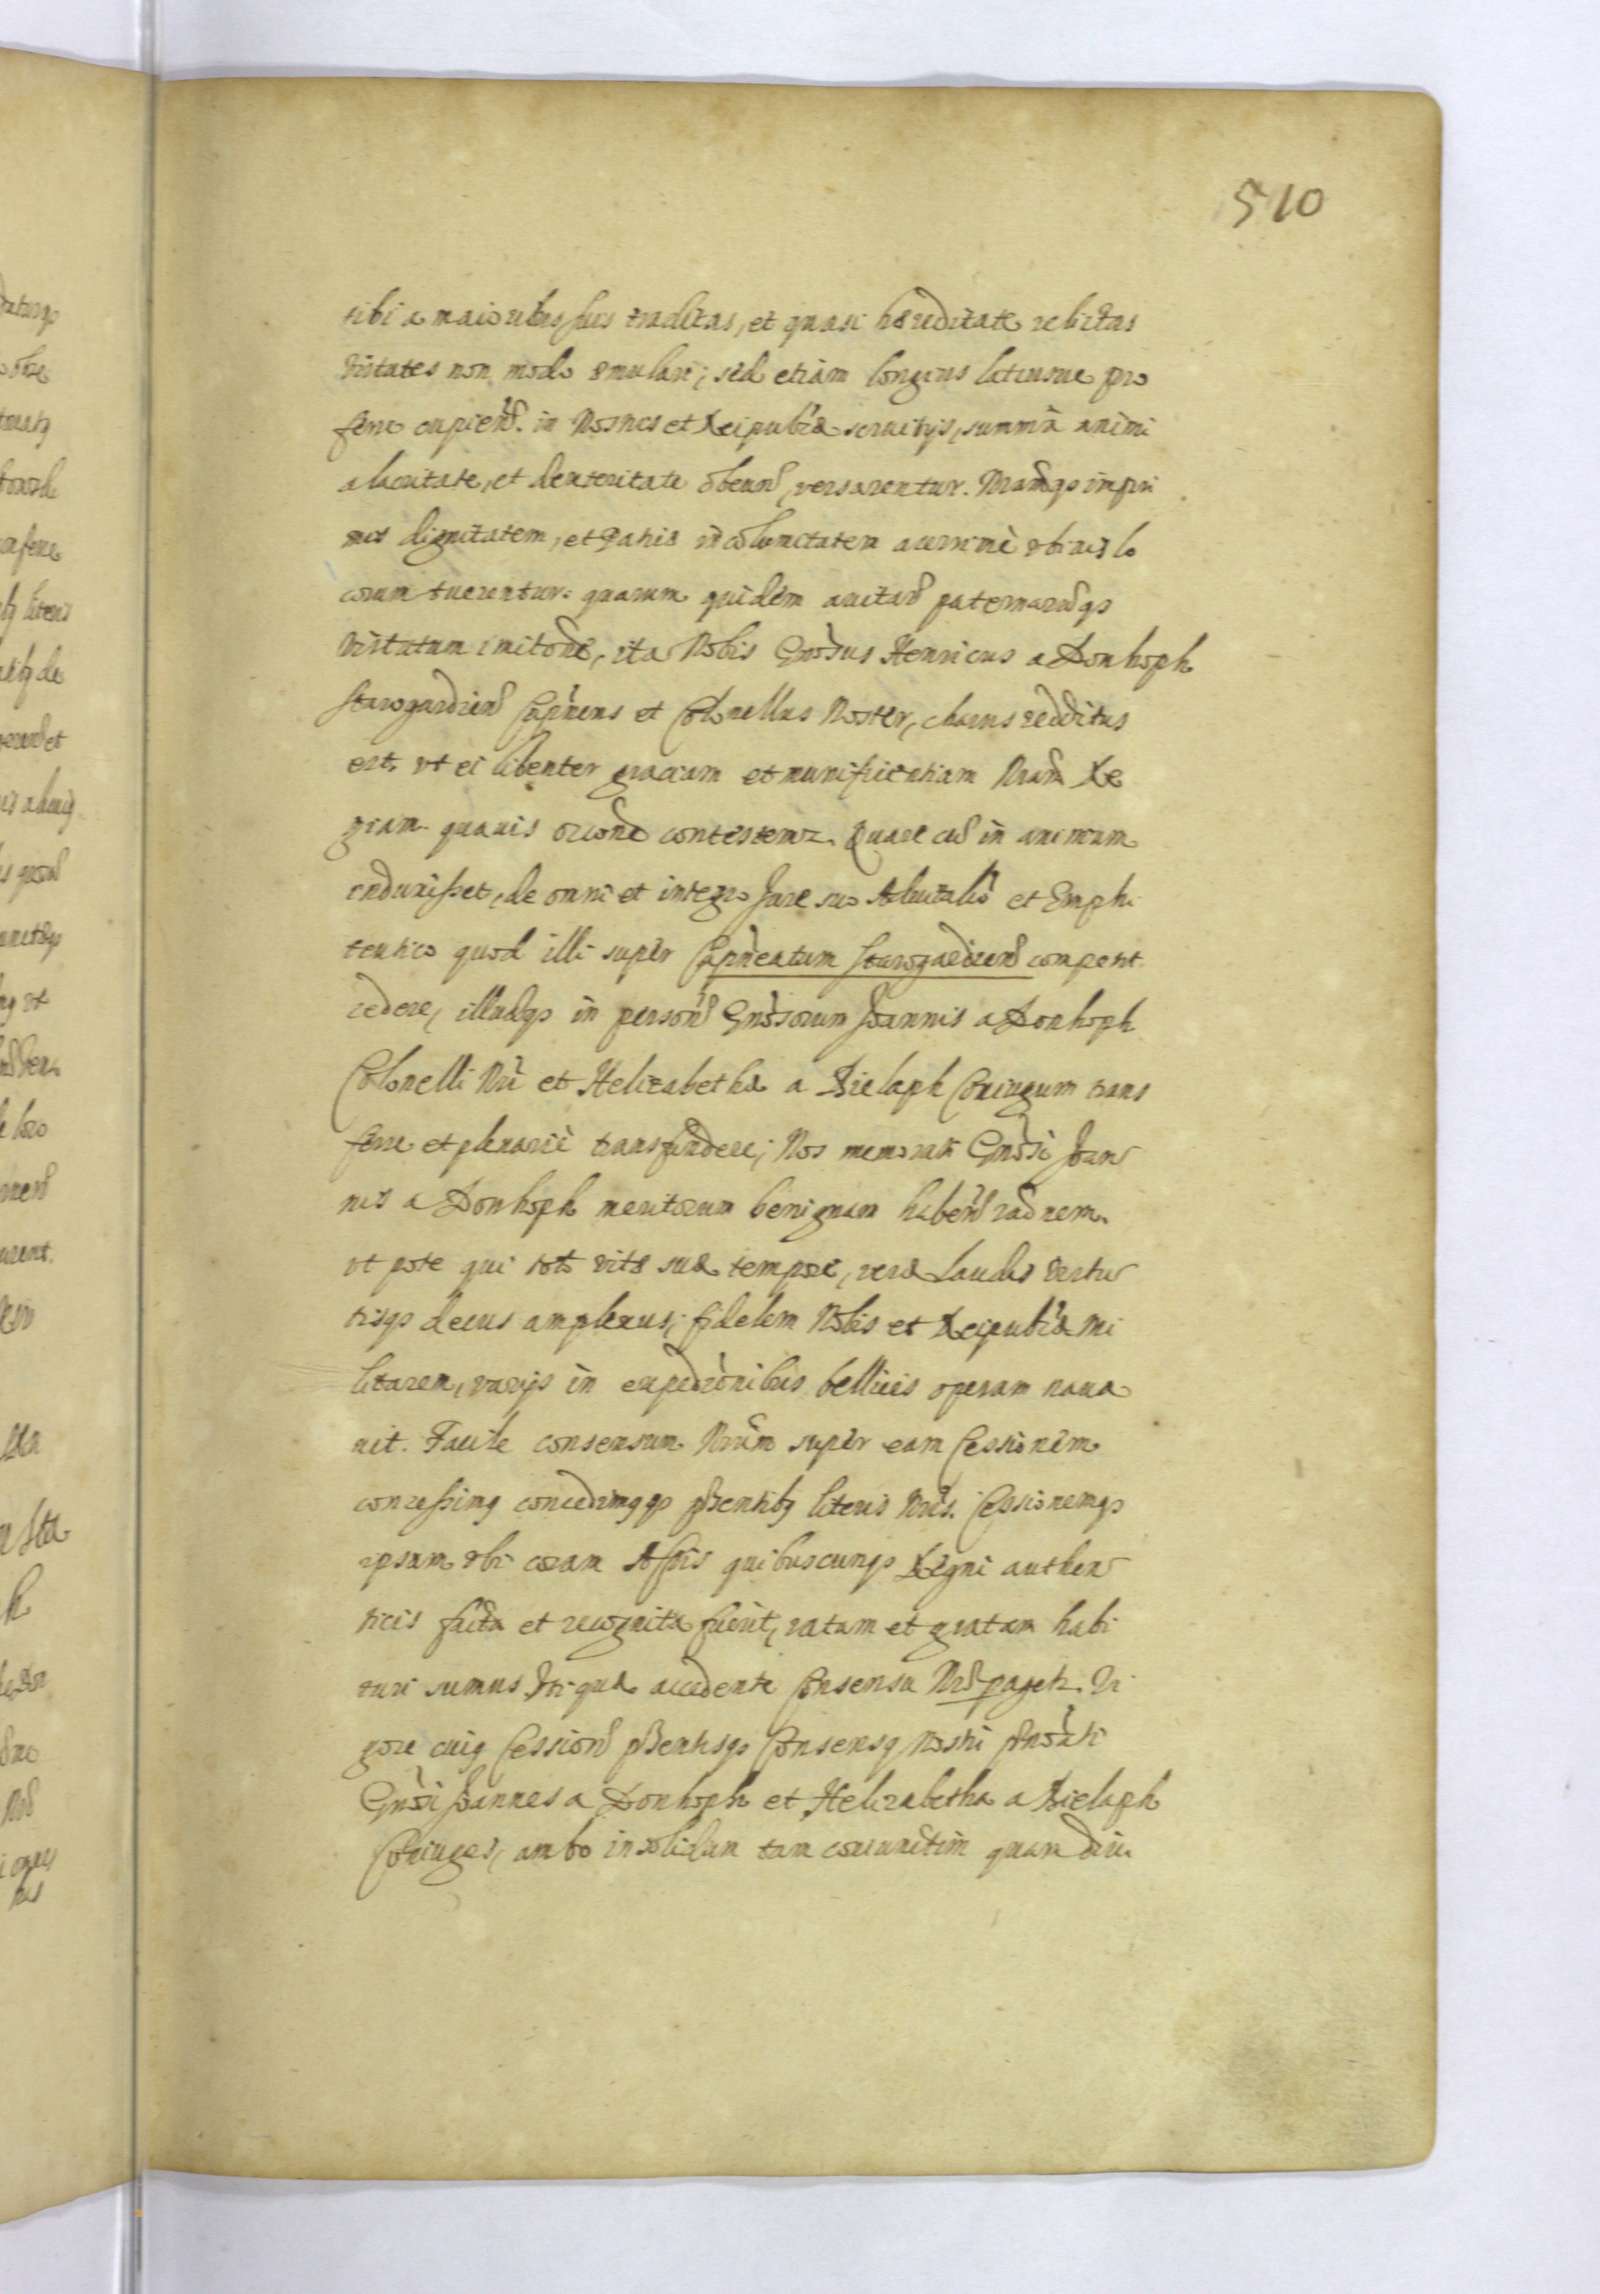 510
tibi a maioribus suis traditas, et quasi hæreditate relictas
virtutes non modo æmulari; sed etiam longius latiusue pro
ferre cupien. in Nostris et Reipublæ seruitijs, summa animi
alacritate, et dexteritate obeun, versarentur. Nramq impri
mis dignitatem, et Patriæ incolumitatem acerrimè vbiuis lo
corum tuerentur. quarum quidem auitar paternarumq
virtutum imitone, ita Nobis Gnosus Henricus a Donhoph
Starogardien Capneus et Colonellus Noster, charus redditus
est, vt ei libenter graciam et munificentiam Nram Re
giam quauis occone contestemur. Quare cu in animum
induxisset, de omni et integro Jure suo Aduitali et Emphi
teutico quod illi super Capneatum Starogardien competit
cedere, illudq in person Gnosorum Joannis a Donhoph
Colonelli Nri et Helizabethæ a Bielaph Coniugum trans
ferre et plenariè transfundere; Nos memorati Gnosi Joan
nis a Donhoph meritorum benignam haben raonem.
vt pote qui toto vitæ suæ tempore, veræ laudis virtu
tisq decus amplexus; fidelem Nobis et Reipublæ mi
litarem, varijs in expedonibus bellicis operam naua
uit. Facile consensum Nrum super eam Cessionem
concessimq concedimqq præsentibq literis Nris. Cessionemq
ipsam vbi coram Actis quibuscunq Regni authen
ticis facta et recognita fuerit, ratam et gratam habi
turi sumus Vtiquæ accedente Consensu Nro pagetr. Vi
gore cuiq Cession præsentisq Consensq Nostri prænoati
Gnosi Joannes a Donhoph et Helizabetha a Bielaph
Coniuges, ambo insolidum tam coniunctim quam diui